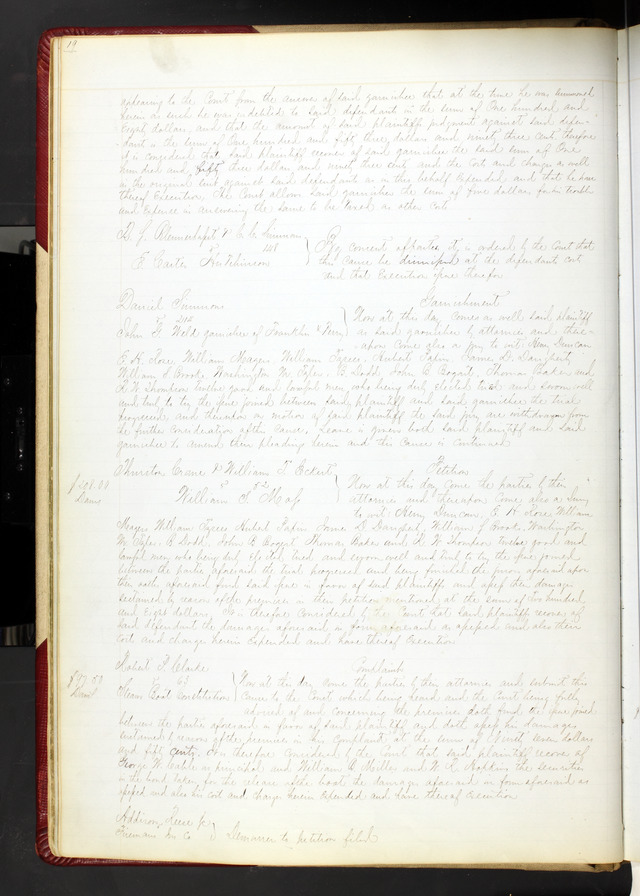 19
appearing to the Court from the answer of said garnishee that at the time he was summoned
herein as such he was indebted to said defendant in the sum of One hundred and
Eight dollars, and that the amount of said plaintiffs judgment against said defen-
dant is the sum of One hundred and fifty three dollars and ninety three cents therefore
it is considered that said plaintiff recover of said garnishee the said sum of One
hundred and fifty three dollars and ninety three cents and the cost and charges as well
in the original suit against said defendant as in this behalf expended, and that he have
thereof Execution. The Court allows said garnishee the sum of five dollars for his trouble
and expense in answering the same to be taxed as other cost
By consent of parties it is ordered by the Court that
F. Carter Hutchinson this cause be dismissed at the defendant cost
and that Execution issue therefor
Daniel Simmons Garnishment
vs Now at this day comes as well said plaintiff
John F. Weld garnishee of Franklin as said garnishee by attorneys and there-
upon come also a jury to wit: Henry Duncan
E. H. Rose William Meager William Hubert James D.
William S. Brooks Washington B. Dodd, John B. Bogart, Thomas Baker and
H. W. Thornton twelve good and lawful men who being duly elected tried and sworn well
and truly to try the issue joined between said plaintiff and said garnishee the trial
progressed and thereupon on motion of said plaintiff the said jury are withdrawn from
the further consideration of the cause. Leave is given both said plaintiff and said
garnishee to amend their pleadings herein and this cause is continued.
Thurston Crane & William T. Eckert Petition
$108.00 vs Now at this day come the parties by their
Dams William attorneys and thereupon come also a Jury
to wit: Henry Duncan, E. H. Rose, William
Meager William Hubert James D. William S. Brooks Washington
B. Dodd, John B. Bogart Thomas Baker and H. W. Thornton twelve good and
lawful men who being duly elected tried and sworn well and truly to try the issue joined
between the parties aforesaid the trial progressed and being finished the jury aforesaid upon
their oaths aforesaid found said issue in favor of said plaintiffs and assess their damages
sustained by reason of the premises in their petition mentioned at the sum of hundred
and Eight dollars. It is therefore considered by the Court that said plaintiffs recover of
said defendant the damages aforesaid in form aforesaid assessed and also their
cost and charges herein expended and have thereof Execution
Robert P. Clarke Complaint
vs Now at this day come the parties by their attorneys and submit this
Steam Boat Constitution Cause to the Court which being heard and the Court being fully
advised of and concerning the premises doth find the issue joined
between the parties aforesaid in favor of said plaintiff and doth assess his damages
sustained by reason of the premises in the complaint at the sum of ninety seven dollars
and fifty cents, it is therefore considered by the Court that said plaintiff recover of
George W. as principal and William A. Miller and W. R. Hopkins the securities
in the bond taken for the release of the boat the damages aforesaid in form aforesaid as-
sessed and also his cost and charges herein expended and have thereof Execution
Addison Reese
vs
Firemans Ins Co Demurrer to petition filed